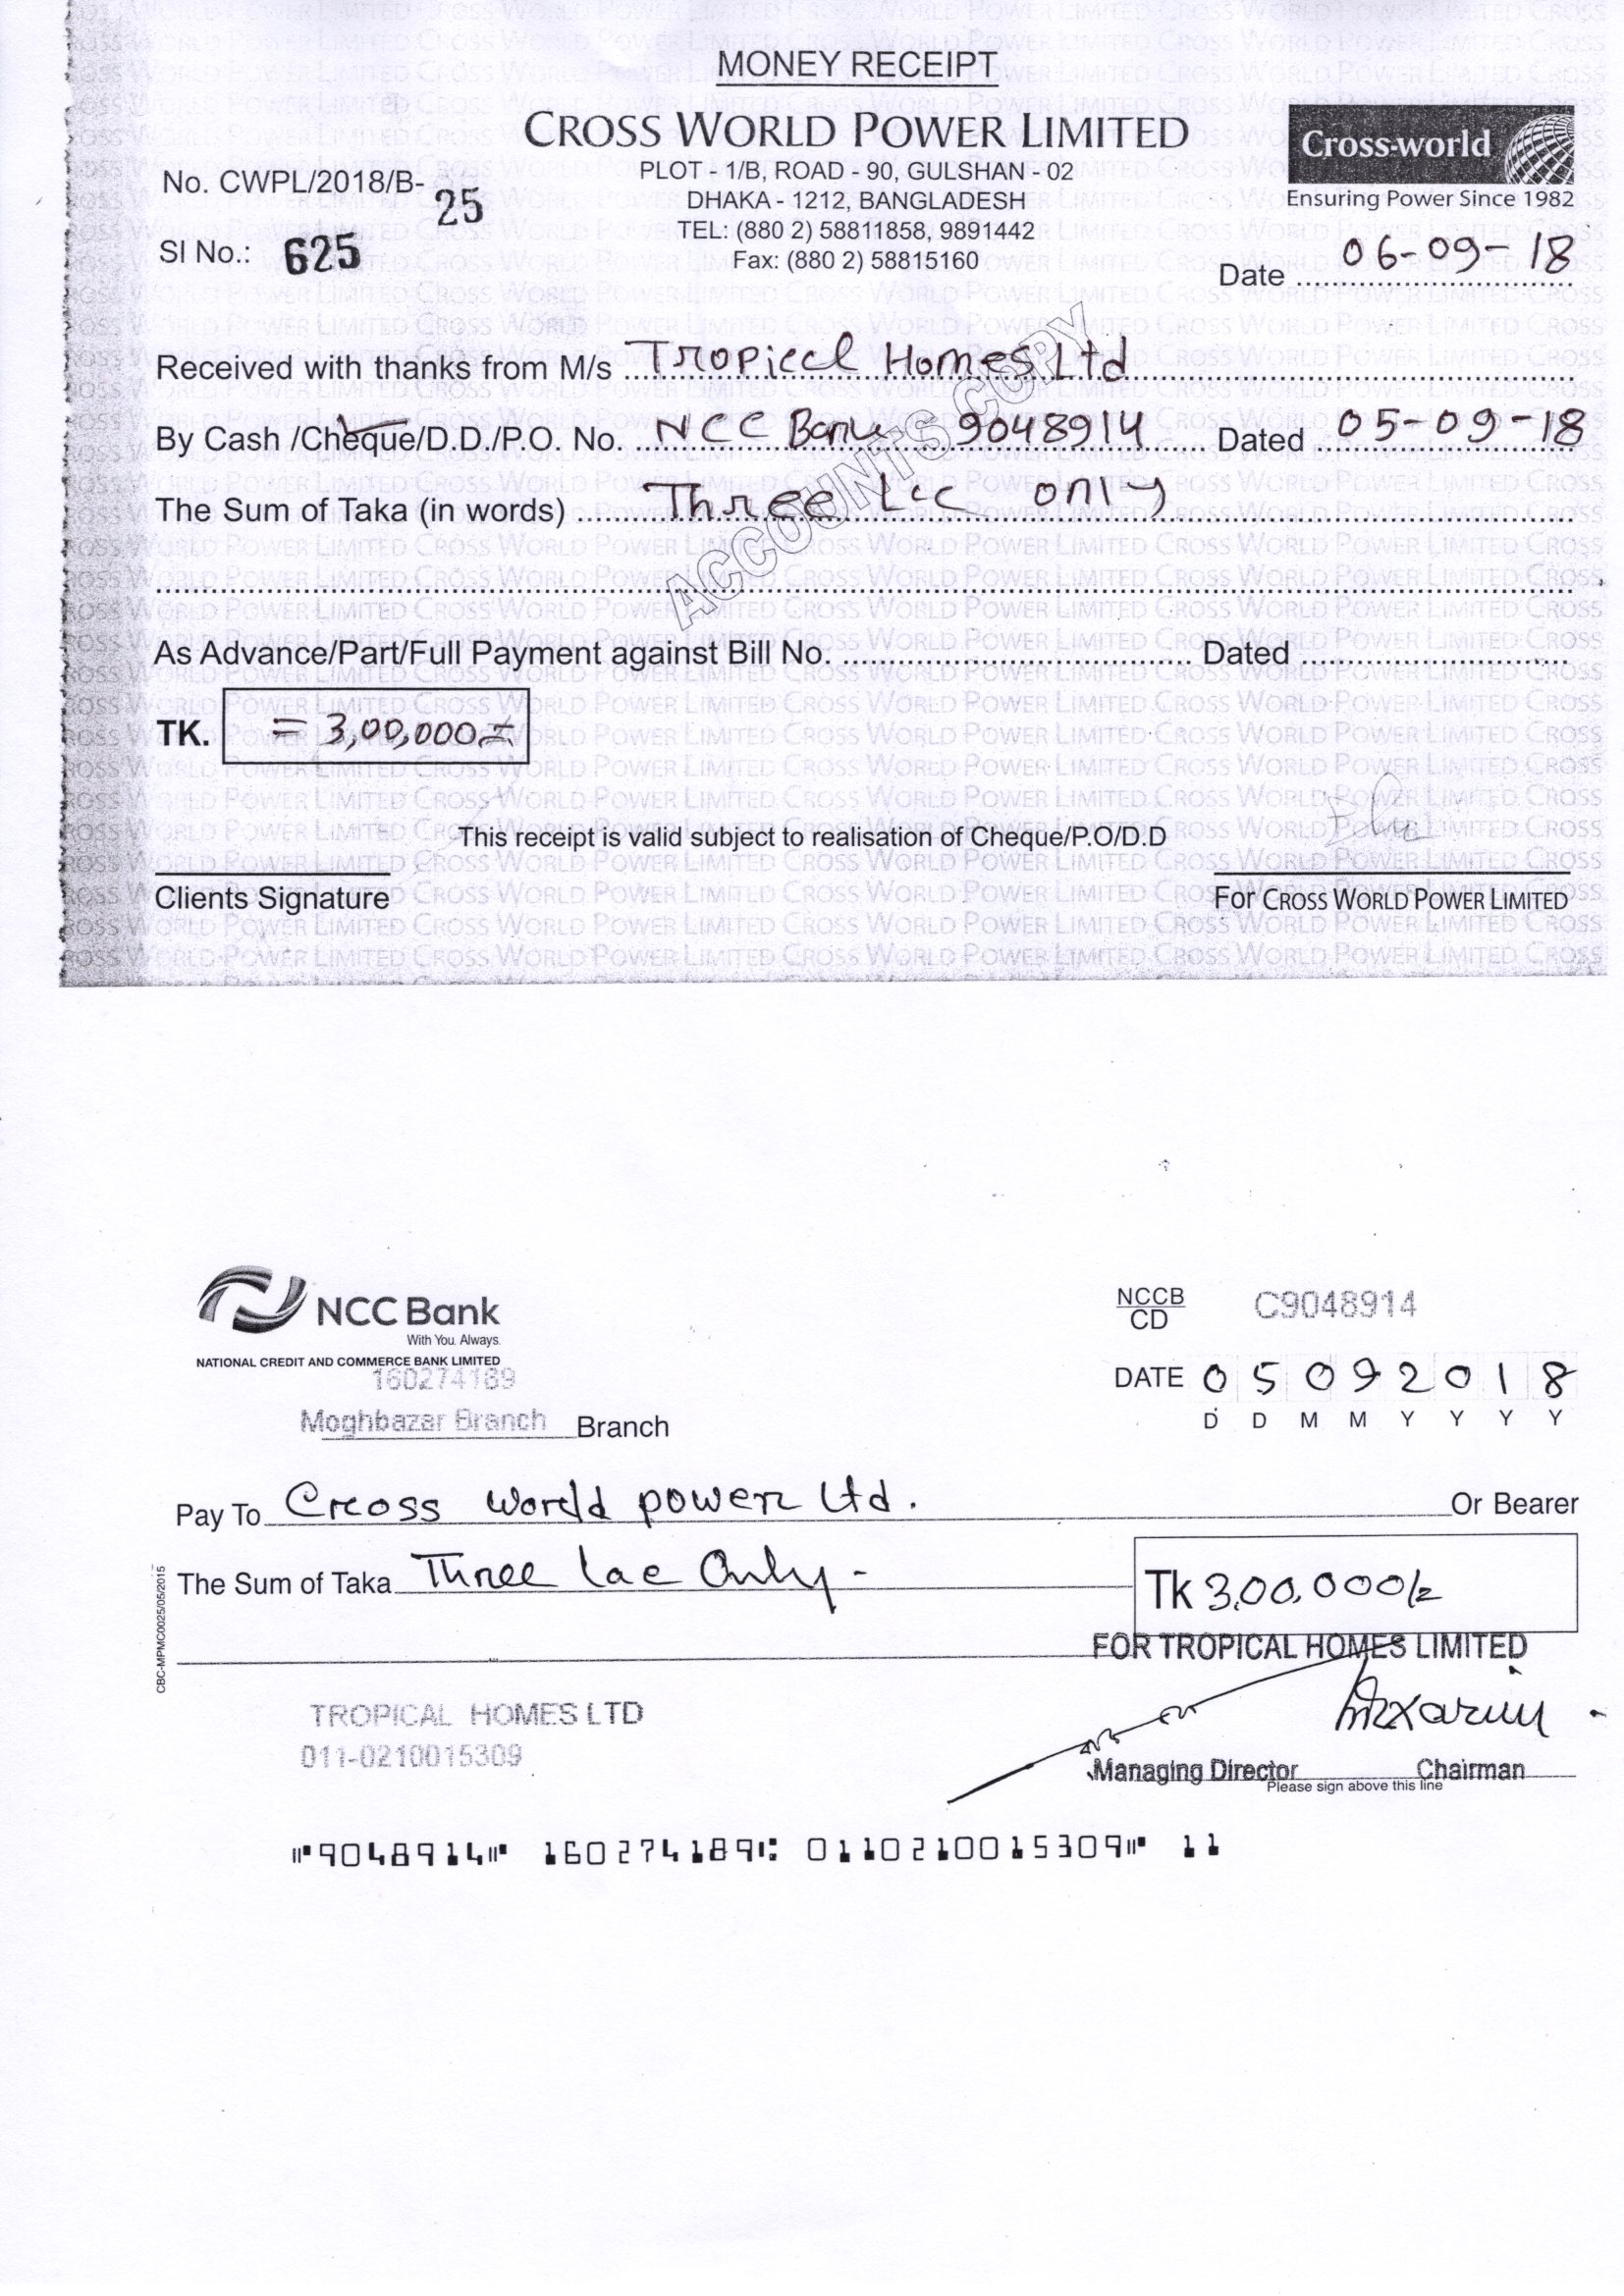 MONEY RECEIPT
CROSS WORLD POWER LIMITED
Cross-world
Ensuring Power Since 1982
PLOT - 1/B, ROAD - 90, GULSHAN - 02
DHAKA - 1212, BANGLADESH
TEL: (880 2) 58811858, 9891442
Fax: (880 2) 58815160
No. CWPL/2018/B- 25
SI No.: 625
Date 06-09-18
Received with thanks from M/s Tropical Homes Ltd
By Cash /Cheque/D.D./P.O. No. NCC Bank 9048914 Dated 05-09-18
The Sum of Taka (in words) Three Lac only
ACCOUNTS COPY
As Advance/Part/Full Payment against Bill No. Dated
TK. = 3,00,000/=
This receipt is valid subject to realisation of Cheque/P.O/D.D
Clients Signature For CROSS WORLD POWER LIMITED
NCC Bank
With You. Always.
NATIONAL CREDIT AND COMMERCE BANK LIMITED
160274189
Moghbazar Branch Branch
NCCB
CD
C9048914
DATE 05092018
D D M M Y Y Y Y
Pay To Cross World power Ltd. Or Bearer
The Sum of Taka Three lac Only - Tk 3,00,000/=
CBC-MPMC0025/05/2015
FOR TROPICAL HOMES LIMITED
TROPICAL HOMES LTD
011-0210015309
Managing Director Chairman
Please sign above this line
9048914 160274189 0110210015309 11